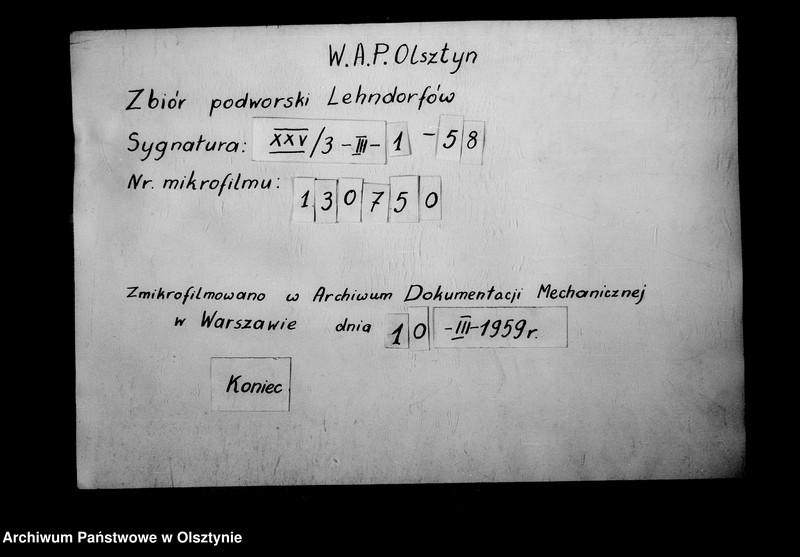 W.A.P. Olsztyn
Zbiór podworski Lehndorfów
Sygnatura: XXV/3 -III- 1 - 58
Nr. mikrofilmu: 130750
Zmikrofilmowano w Archiwum Dokumentacji Mechanicznej
w Warszawie dnia 10 -III-1959r.
Koniec
Archiwum Państwowe w Olsztynie